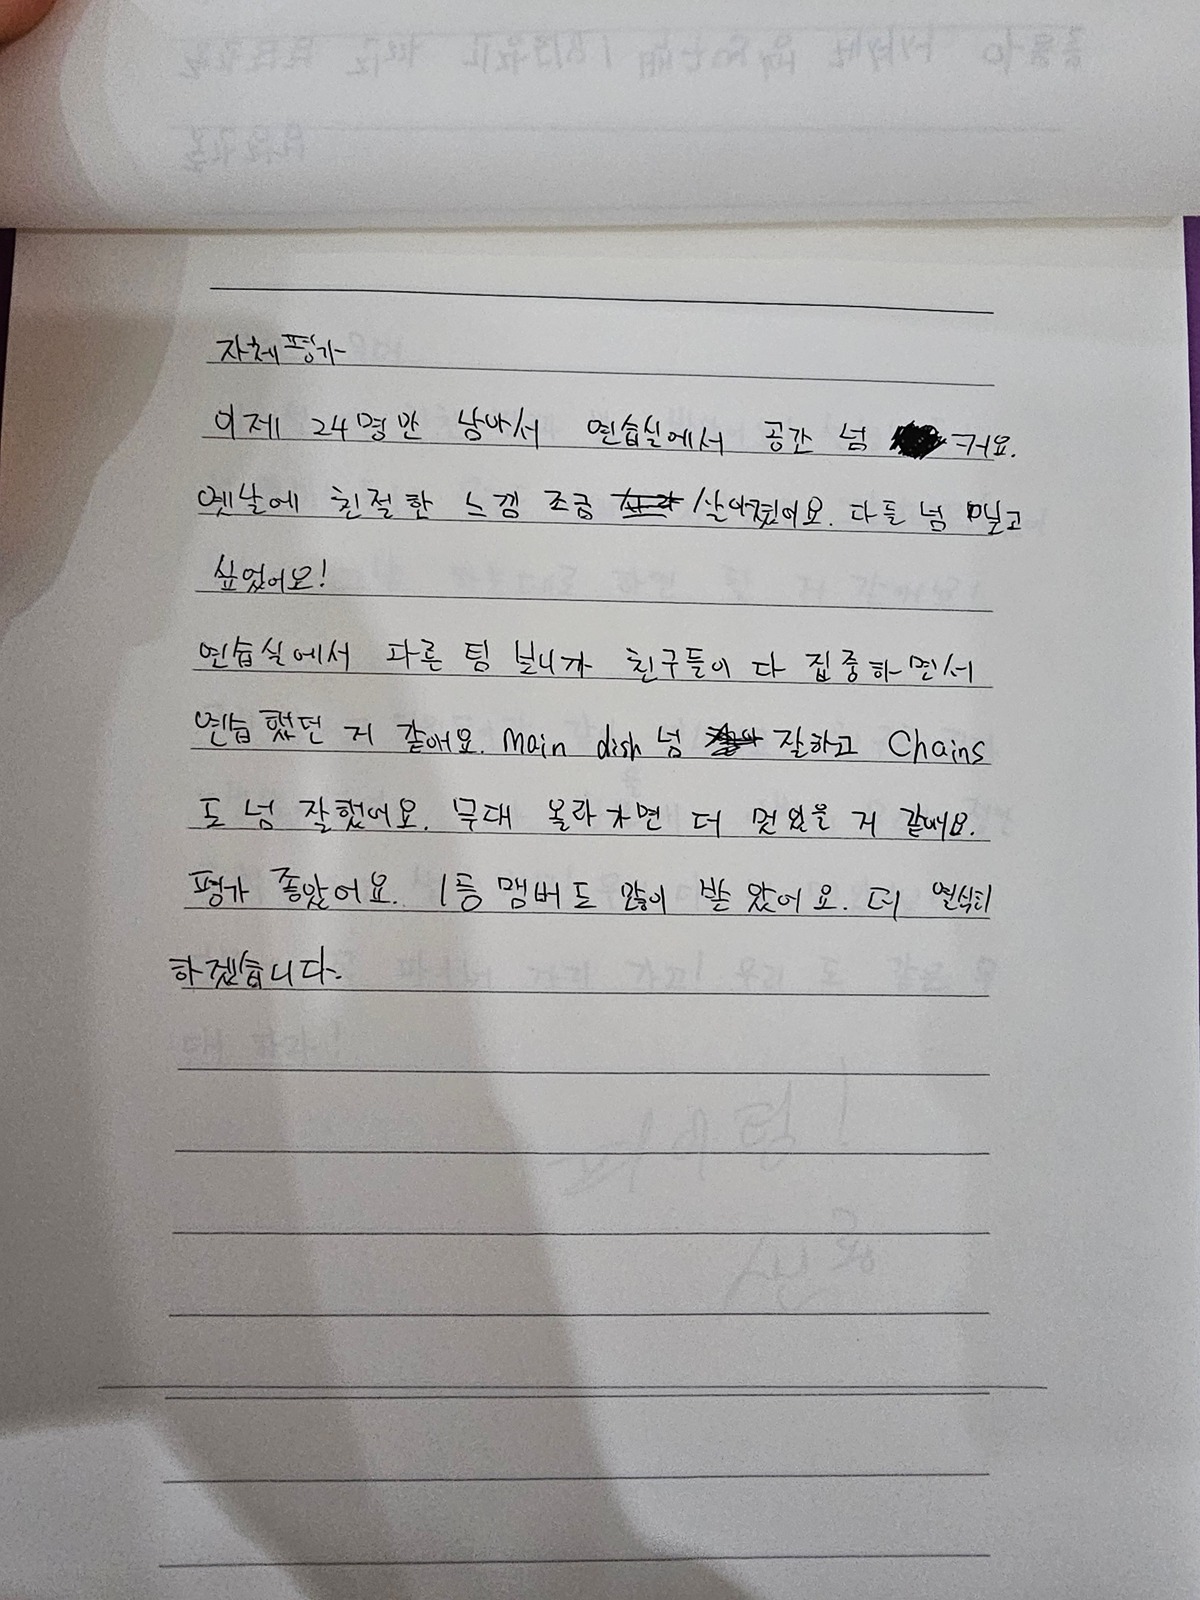 자체평가
이제 24명만 남아서 연습실에서 공간 넘 커요.
옛날에 친절한 느낌 조금 살아졌어요. 다들 넘 보고
싶었어요!
연습실에서 다른 팀 보니까 친구들이 다 집중하면서
연습했던 거 같애요. main dish 넘 잘하고 Chains
도 넘 잘했어요. 무대 올라가면 더 멋있을 거 같애요.
평가 좋았어요. 1등 멤버도 많이 받았어요. 더 열심히
하겠습니다.